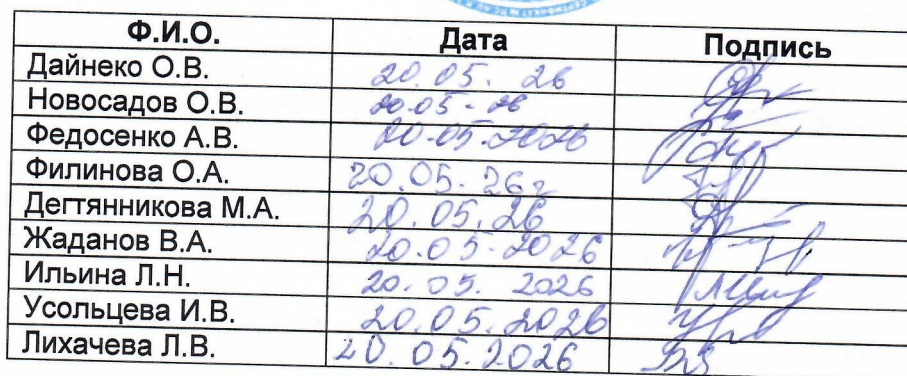 СЕРТИФИКАТ №
Ф.И.О. Дата Подпись
Дайнеко О.В. 20.05.26
Новосадов О.В. 20.05-26
Федосенко А.В. 20.05.2026
Филинова О.А. 20.05.26г
Дегтянникова М.А. 20.05.26
Жаданов В.А. 20.05.2026
Ильина Л.Н. 20.05.2026
Усольцева И.В. 20.05.2026
Лихачева Л.В. 20.05.2026